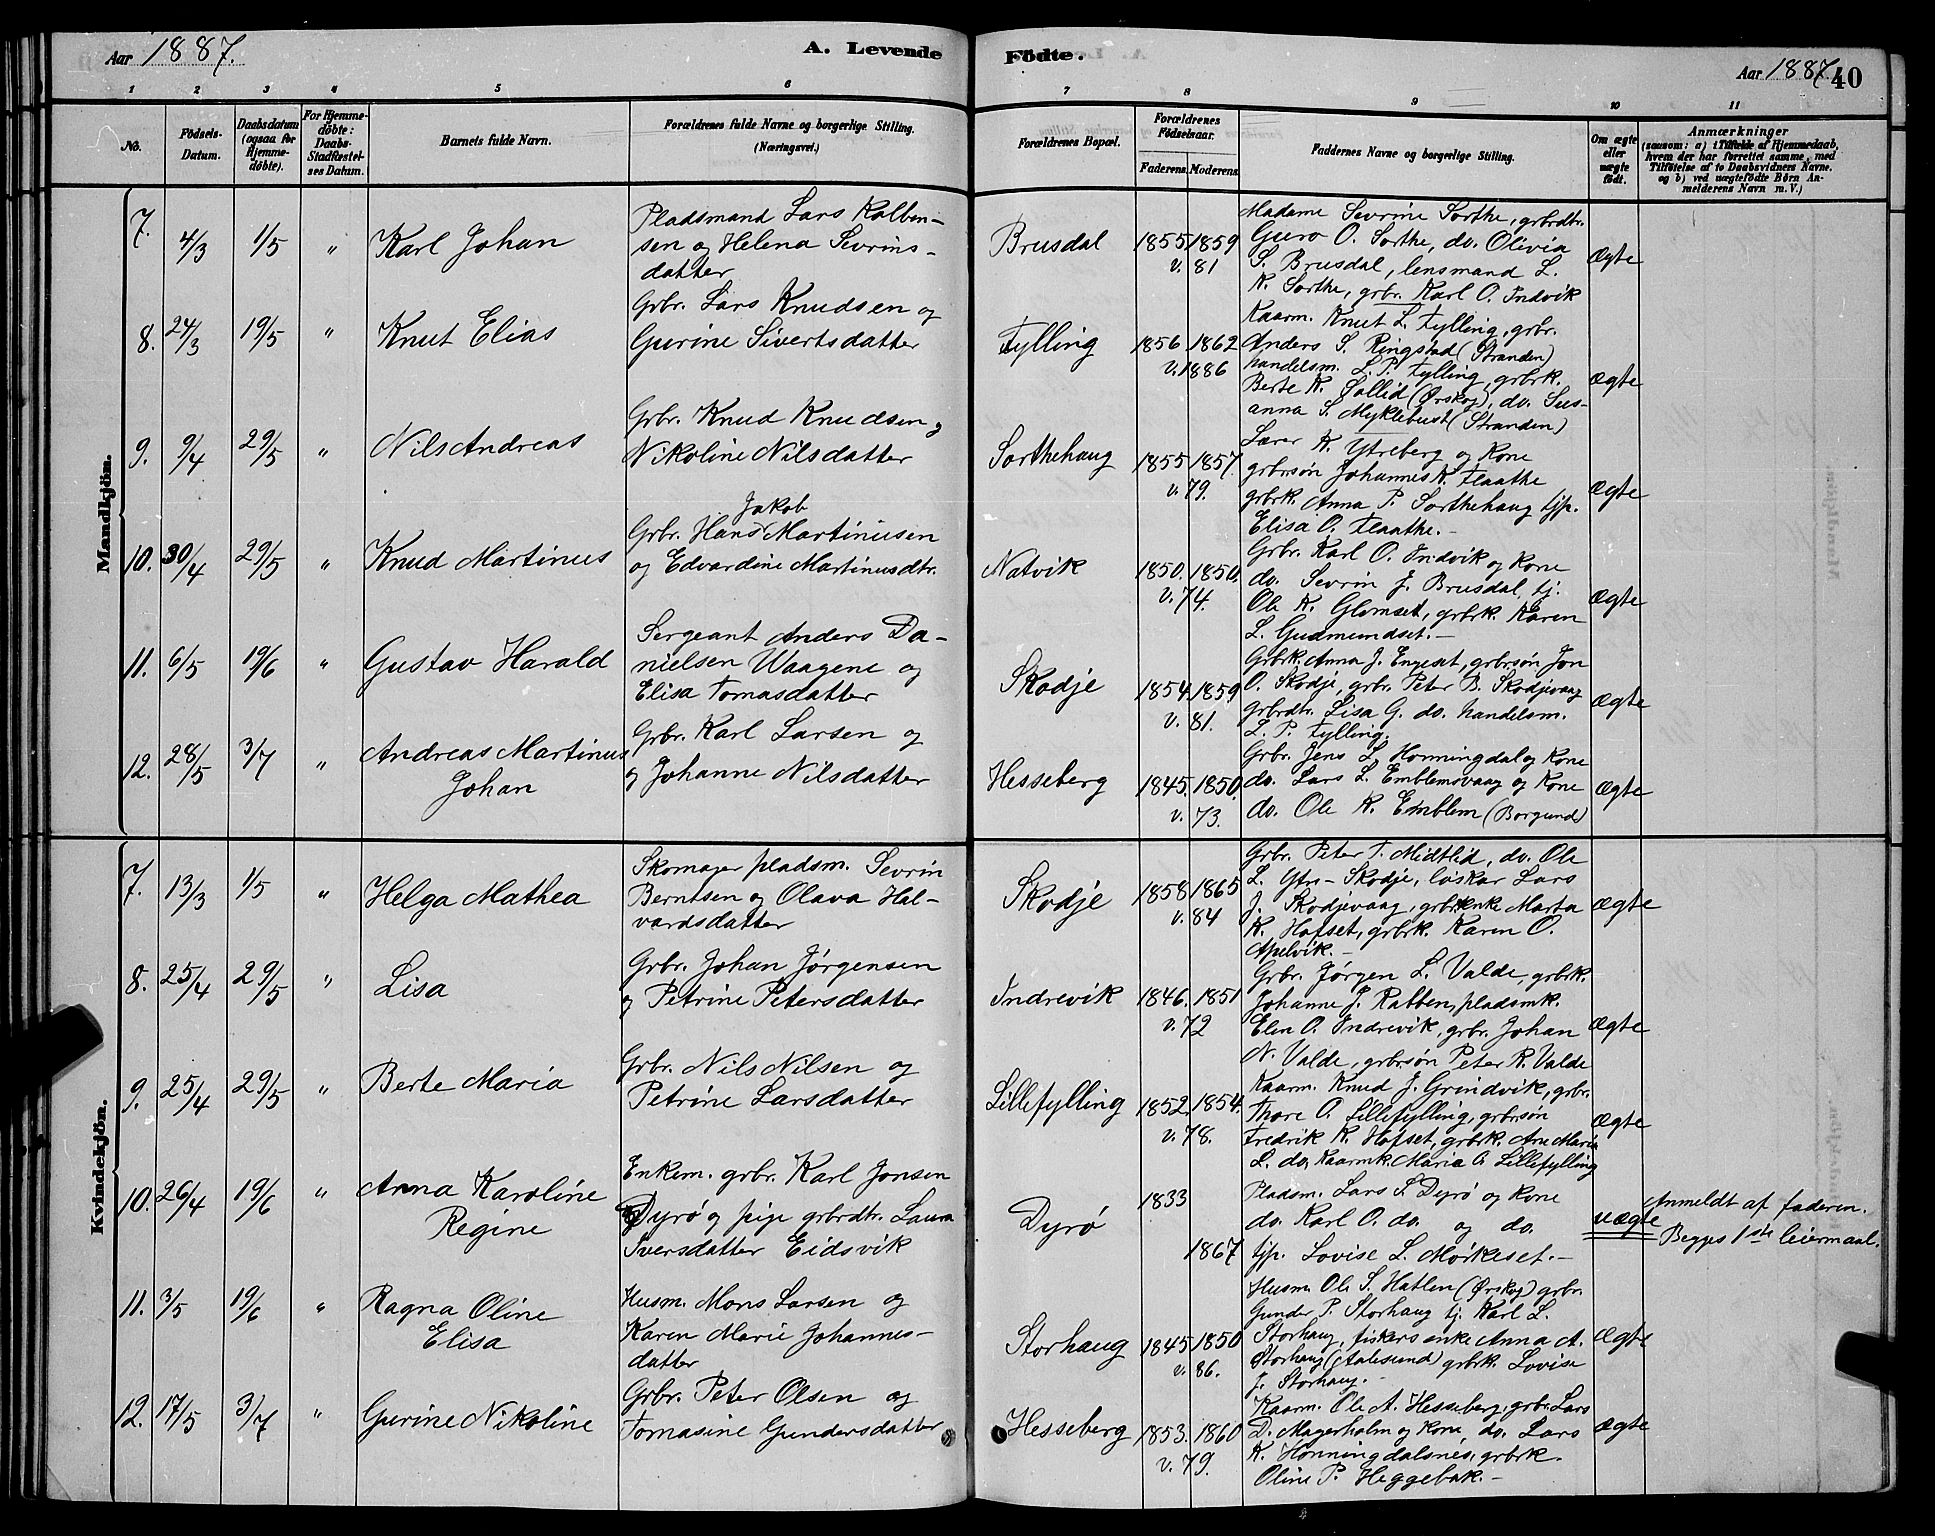 Aar 1887.
A. Levende Födte.
Aar 1887. 40
1 2 3 4 5 6 7 8 9 10 11
No.
Födsels-Datum.
Daabsdatum (ogsaa for Hjemmedöbte).
For Hjemmedöbte: Daabs-Stadfæstelses Datum.
Barnets fulde Navn.
Forældrenes fulde Navne og borgerlige Stilling. (Næringsvei.)
Forældrenes Bopæl.
Forældrenes Födselsaar.
Faderens. Moderens.
Faddernes Navne og borgerlige Stilling.
Om ægte eller uægte födt.
Anmærkninger (saasom: a) i Tilfælde af Hjemmedaab, hvem der har forrettet samme, med Tilföielse af to Daabsvidners Navne, og b) ved uægtefödte Börn Anmelderens Navn m. V.)
Mandkjön.
7. 4/3 1/5 " Karl Johan
Pladsmand Lars Kolben-
sen og Helena Sevrins-
datter
Brusdal 1855 1859
v. 81
Madame Sevrine Sorthe, grbrdtr.
Guro O. Sorthe, do. Olivia
S. Brusdal, lensmand L.
K. Sorthe, grbr. Karl O. Indvik
Ægte
8. 24/3 19/5 " Knut Elias
Grbr. Lars Knudsen og
Gurine Sivertsdatter
Fylling 1856 1862
v. 1886
Kaarm. Knut L. Fylling, grbr.
Anders S. Ringstad (Stranden)
handelsm. L. P. Fylling, grbrk.
Berte K. Sollid (Ørskog), do. Sus-
anna S. Myklebust (Stranden)
Ægte
9. 9/4 29/5 " Nils Andreas
Grbr. Knud Knudsen og
Nikoline Nilsdatter
Sorthehaug 1855 1857
v. 79.
Lærer K. Ytreberg og Kone
grbrsøn Johannes K. Flaathe
grbrk. Anna P. Sorthehaug tjp.
Elisa O. Flaathe.-
Ægte
10. 30/4 29/5 " Knud Martinus
Jakob
Grbr. Hans Martinusen
og Edvardine Martinusdtr.
Natvik 1850. 1850.
v. 74.
Grbr. Karl O. Indvik og Kone
do. Sevrin J. Brusdal, tj.
Ole K. Glomset, grbrk. Karen
L. Gudmundset.-
Ægte
11. 6/5 19/6 " Gustav Harald
Sergeant Anders Da-
nielsen Waagene og
Elisa Tomasdatter
Skodje 1854 1859
v. 81.
Grbrk. Anna J. Engeset, grbrsøn Jon
O. Skodje, grbr. Peter B. Skodjevaag
grbrdtr. Lisa G. do. handelsm.
L. P. Fylling.
Ægte
12. 28/5 3/7 " Andreas Martinus
Johan
Grbr. Karl Larsen og
og Johanne Nilsdatter
Hesseberg 1845. 1850.
v. 73.
Grbr. Jens L. Honningdal og Kone
do. Lars L. Emblemsvaag og Kone
do. Ole K. Emblem (Borgund)
Ægte
Kvindekjön.
7. 13/3 1/5 " Helga Mathea
Skomager pladsm. Sevrin
Berntsen og Olava Hal-
vardsdatter
Skodje 1858 1865
v. 84
Grbr. Peter T. Midtlid, do. Ole
L. Ytre-Skodje, løskar Lars
J. Skodjevaag, grbrenke Marta
K. Hofset, grbrk. Karen O.
Apelvik.-
Ægte
8. 25/4 29/5 " Lisa
Grbr. Johan Jørgensen
og Petrine Petersdatter
Indrevik 1846. 1851
v. 72
Grbr. Jørgen L. Valde, grbrk.
Johanne J. Rabben, pladsmk.
Elen O. Indrevik, grbr. Johan
N. Valde, grbrsøn Peter R. Valde
Ægte
9. 25/4 29/5 " Berte Maria
Grbr. Nils Nilsen og
Petrine Larsdatter
Lillefylling 1852. 1854.
v. 78.
Kaarm. Knud J. Grindvik, grbr.
Thore O. Lillefylling, grbrsøn
Fredrik K. Hofset, grbrk. Ane Maria
L. do, Kaarmk. Maria O. Lillefylling
Ægte
10. 26/4 19/6 " Anna Karoline
Regine
Enkem. grbr. Karl Jonsen
Dyrø og pige grbrdtr. Laura
Iversdatter Eidsvik
Dyrø 1833
1867
Pladsm. Lars L. Dyrø og Kone
do. Karl O. do. og do.
tjp. Lovise L. Mørkeset.-
uægte
Anmeldt af faderen.
Begges 1ste leiermaal.
11. 3/5 19/6 " Ragna Oline
Elisa
Husm. Mons Larsen og
Karen Marie Johannes-
datter
Storhaug 1845 1850
v. 86.
Husm. Ole S. Hatlen (Ørskog) grbr.
Gunder P. Storhaug tj. Karl L.
Storhaug, fiskers enke Anna A.
Storhaug (Aalesund) grbrk. Lovise
J. Storhaug.-
Ægte
12. 17/5 3/7 " Gurine Nikoline
Grbr. Peter Olsen og
Tomasine Gundersdatter
Hesseberg 1853. 1860
v. 79.
Kaarm. Ole A. Hesseberg, grbr. Lars
D. Magerholm og Kone, do. Lars
K. Honningdalsnes, grbrk.
Oline P. Heggebak.-
Ægte